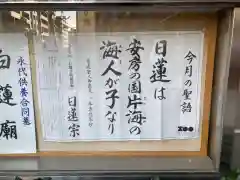 今月の聖語
日蓮は
安房の国片海の
海人が子なり
日蓮宗
永代供養合同
白蓮廟